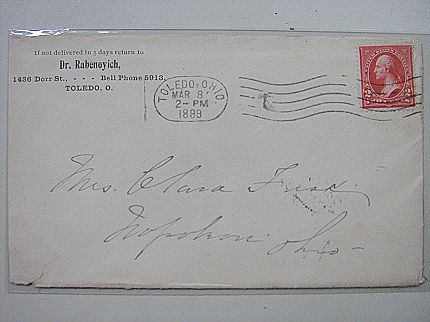 If not delivered in 5 days return to
Dr. Rabenovich,
1436 Dorr St., - - - Bell Phone 5913,
TOLEDO, O.
TOLEDO, OHIO.
MAR 8
2-PM
1899
Mrs. Clara Frisk.
Napoleon Ohio